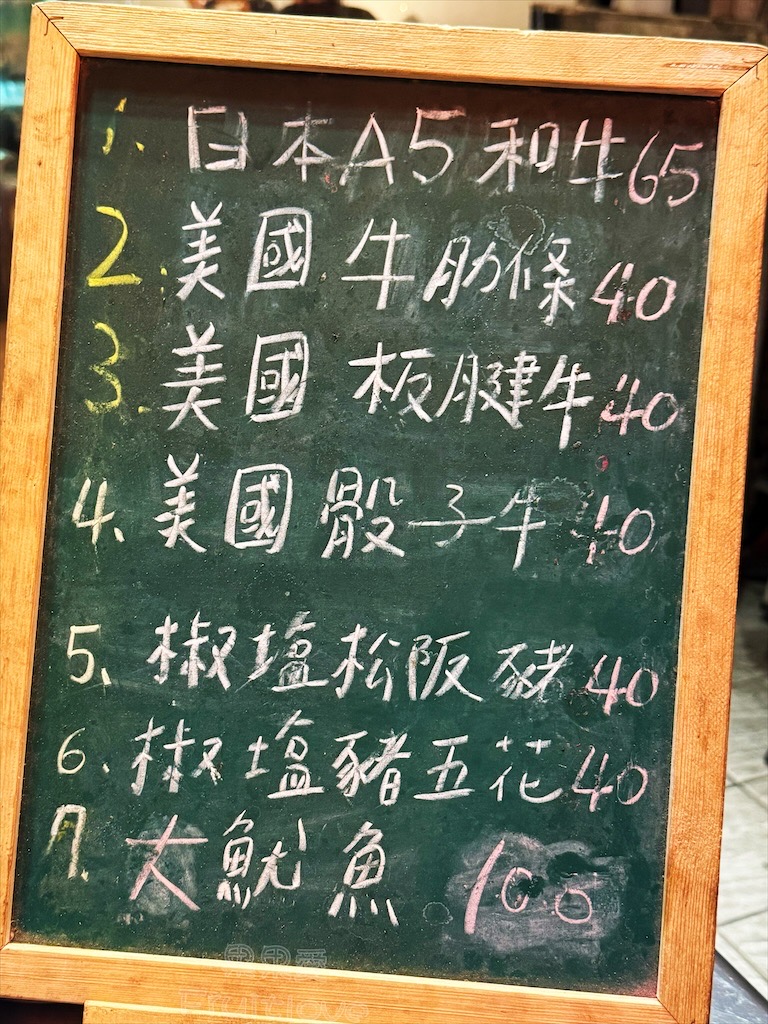 1. 日本A5和牛65
2. 美國 牛肋條40
3. 美國 板腱牛40
4、美國骰子牛 40
5、椒塩松阪豬40
6、椒塩豬五花40
7、大魷魚 100